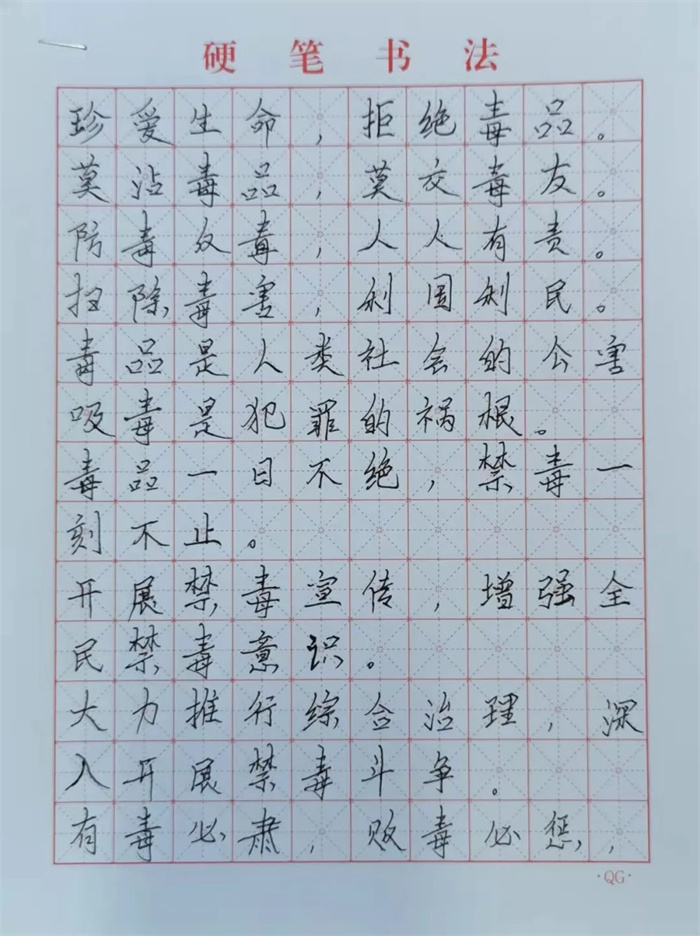 硬笔书法
珍爱生命，拒绝毒品。
莫沾毒品，莫交毒友。
防毒反毒，人人有责。
扫除毒害，利国利民。
毒品是人类社会的公害
吸毒是犯罪的祸根。
毒品一日不绝，禁毒一
刻不止。
开展禁毒宣传，增强全
民禁毒意识。
大力推行综合治理，深
入开展禁毒斗争。
有毒必肃，贩毒必惩，
·QG·